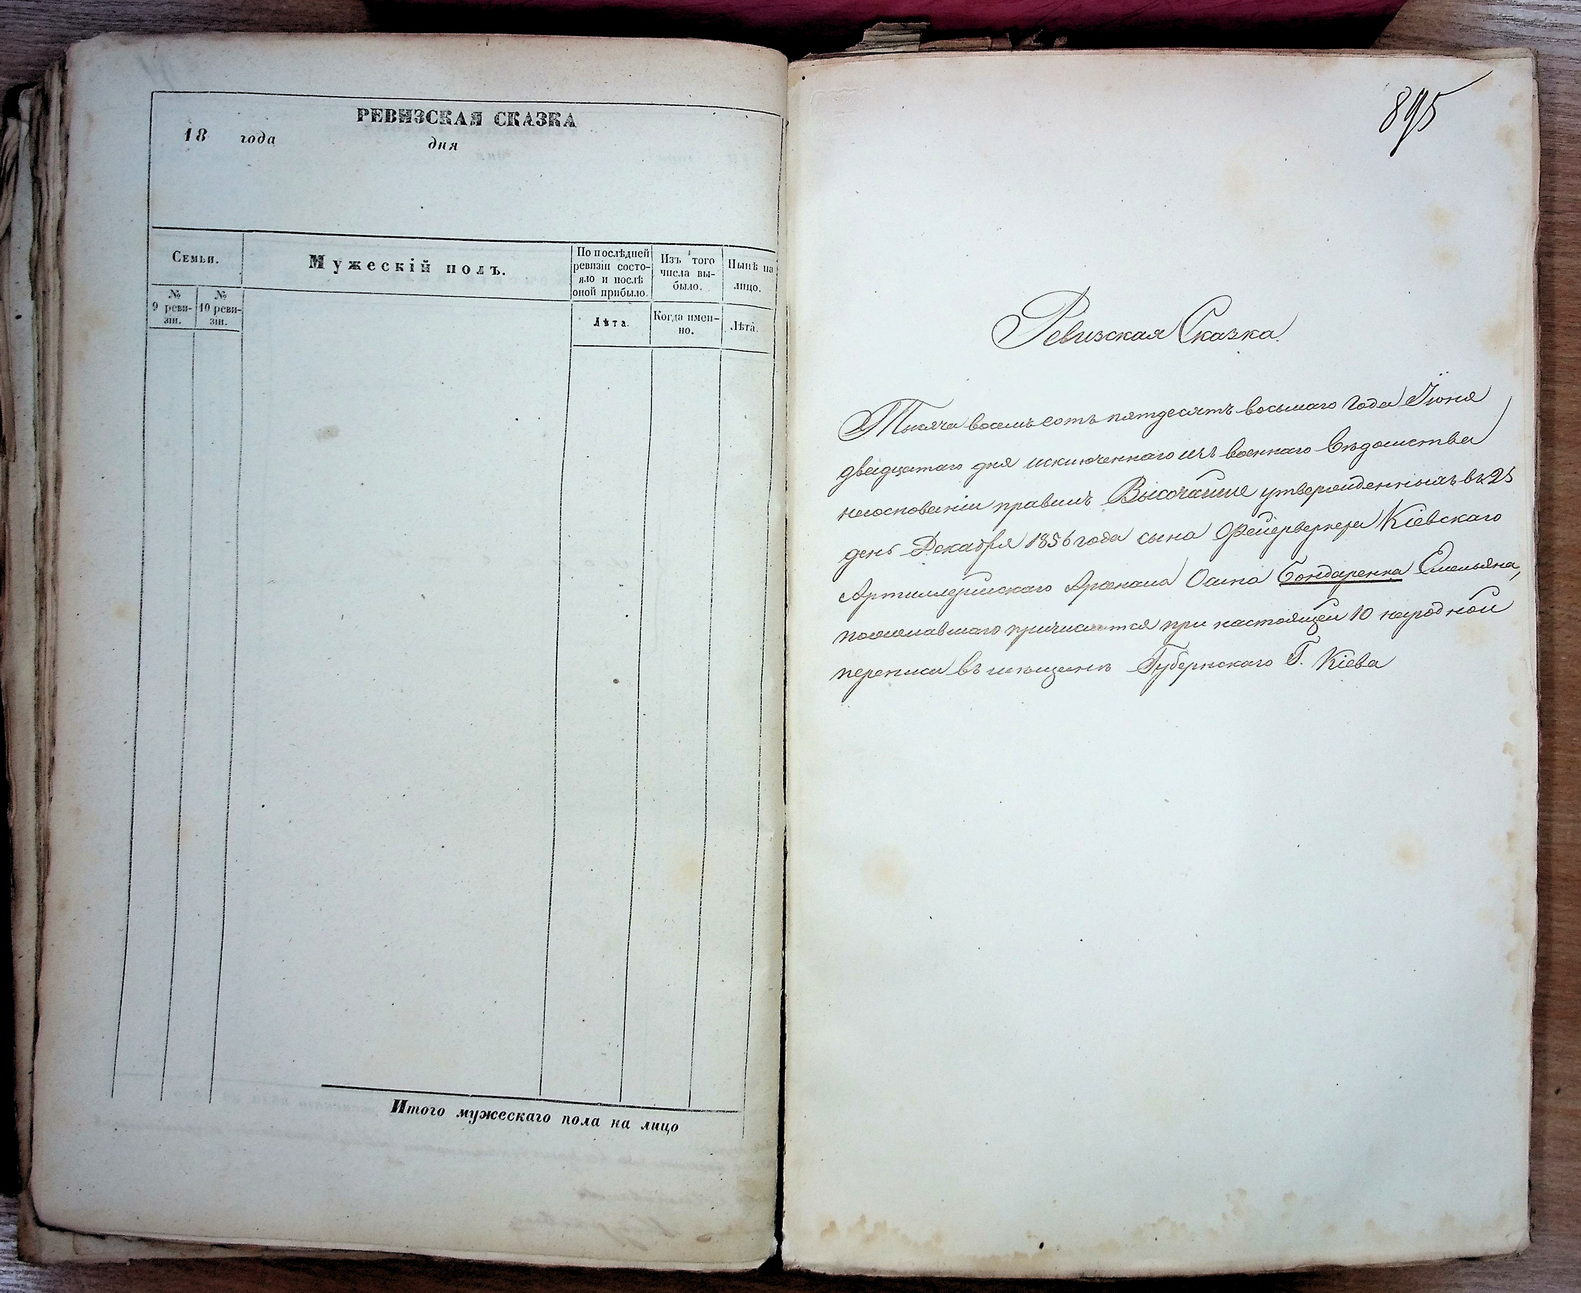 РЕВИЗСКАЯ СКАЗКА
18 года дня
Семьи.
№ 9 реви-
зіи.
№ 10 реви-
зіи.
Мужескій полъ.
По послѣдней
ревизіи состо-
яло и послѣ
оной прибыло.
Лѣта.
Изъ того
числа вы-
было.
Когда имен-
но.
Нынѣ на
лицо.
Лѣта.
Итого мужескаго пола на лицо
895
Ревизская Сказка
Тысяча восемьсотъ пятдесятъ восьмаго года Іюня
двадцатаго дня исключеннаго изъ военнаго вѣдомства
наосновании правилъ Высочайше утвержденныхъ въ 25
день Декабря 1856 года сына Фейерверкера Кіевскаго
Артиллерійскаго Арсенала Осипа Бондаренка Емельяна,
пожелавшаго причислится при настоящей 10 народной
переписи въ мѣщане Губернскаго Г. Кіева